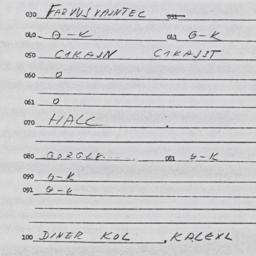 030 FARVUSVAINTEC 031
040 G-K 041 G-K
050 C1KAJN C1KAJJT
060 0
061 0
070 HALL
080 081 G-K
090 G-K
091 G-K
100 DINER KOL , KALEXL